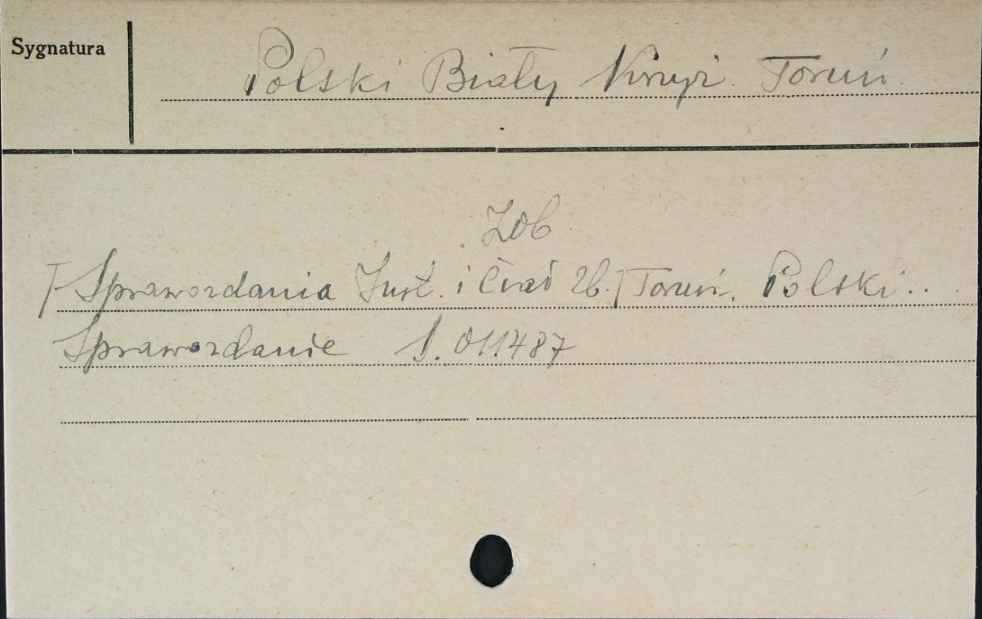 Sygnatura
Polski Biały Krzyż. Toruń.
Zob
[Sprawozdania Inst. i Tow. Zb.] Toruń. Polski..
Sprawozdanie S. 011487